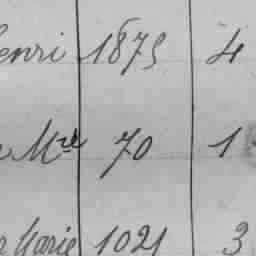 enri 1875 4
Mre 70 1
Marie 1021 3